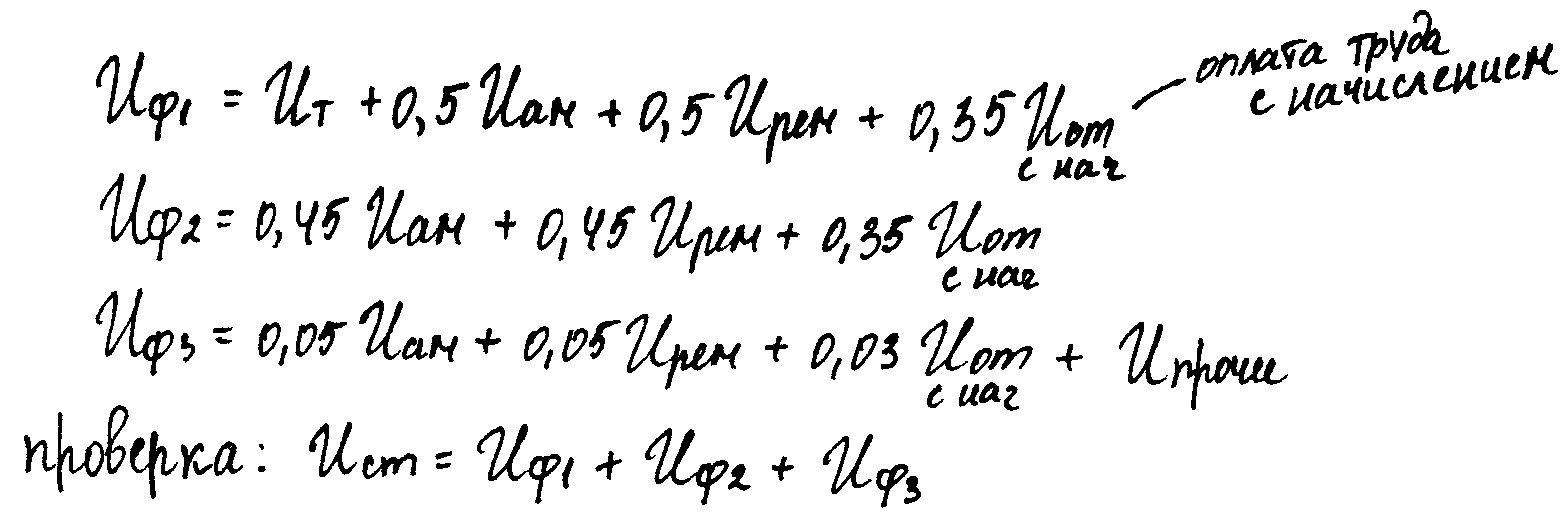 Иф1 = Ит + 0,5 Иам + 0,5 Ирем + 0,35 Иот с нач
оплата труда
с начислением
Иф2 = 0,45 Иам + 0,45 Ирем + 0,35 Иот с нач
Иф3 = 0,05 Иам + 0,05 Ирем + 0,03 Иот с нач + Ипрочие
проверка: Ист = Иф1 + Иф2 + Иф3